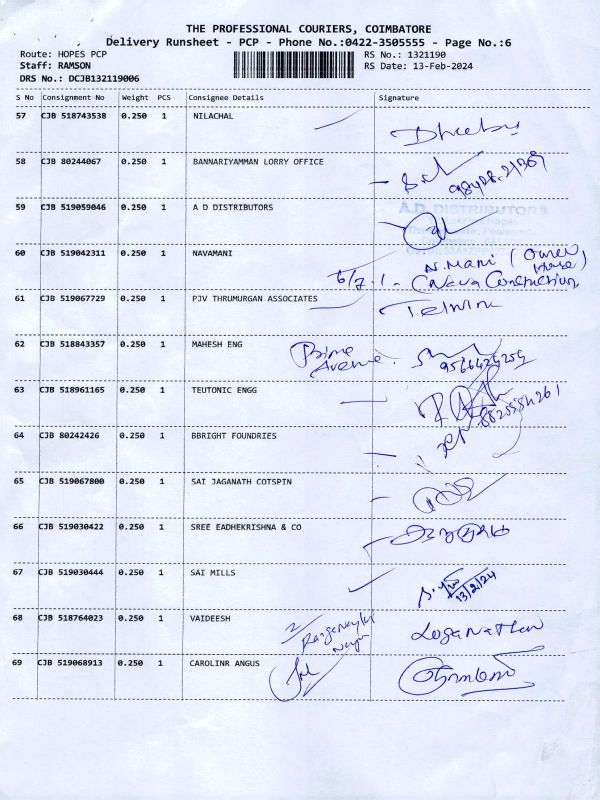 THE PROFESSIONAL COURIERS, COIMBATORE
Delivery Runsheet - PCP - Phone No.:0422-3505555 - Page No.:6
Route: HOPES PCP RS No.: 1321190
Staff: RAMSON RS Date: 13-Feb-2024
DRS No.: DCJB132119006
S No Consignment No Weight PCS Consignee Details Signature
57 CJB 518743538 0.250 1 NILACHAL
58 CJB 80244067 0.250 1 BANNARIYAMMAN LORRY OFFICE
59 CJB 519059046 0.250 1 A D DISTRIBUTORS A.D. DISTRIBUTORS
60 CJB 519042311 0.250 1 NAVAMANI N.Mani (Owner House)
61 CJB 519067729 0.250 1 PJV THRUMURGAN ASSOCIATES
62 CJB 518843357 0.250 1 MAHESH ENG Prime Avenue
63 CJB 518961165 0.250 1 TEUTONIC ENGG
64 CJB 80242426 0.250 1 BBRIGHT FOUNDRIES
65 CJB 519067800 0.250 1 SAI JAGANATH COTSPIN
66 CJB 519030422 0.250 1 SREE EADHEKRISHNA & CO
67 CJB 519030444 0.250 1 SAI MILLS 13/2/24
68 CJB 518764023 0.250 1 VAIDEESH Loganathan
69 CJB 519068913 0.250 1 CAROLINR ANGUS